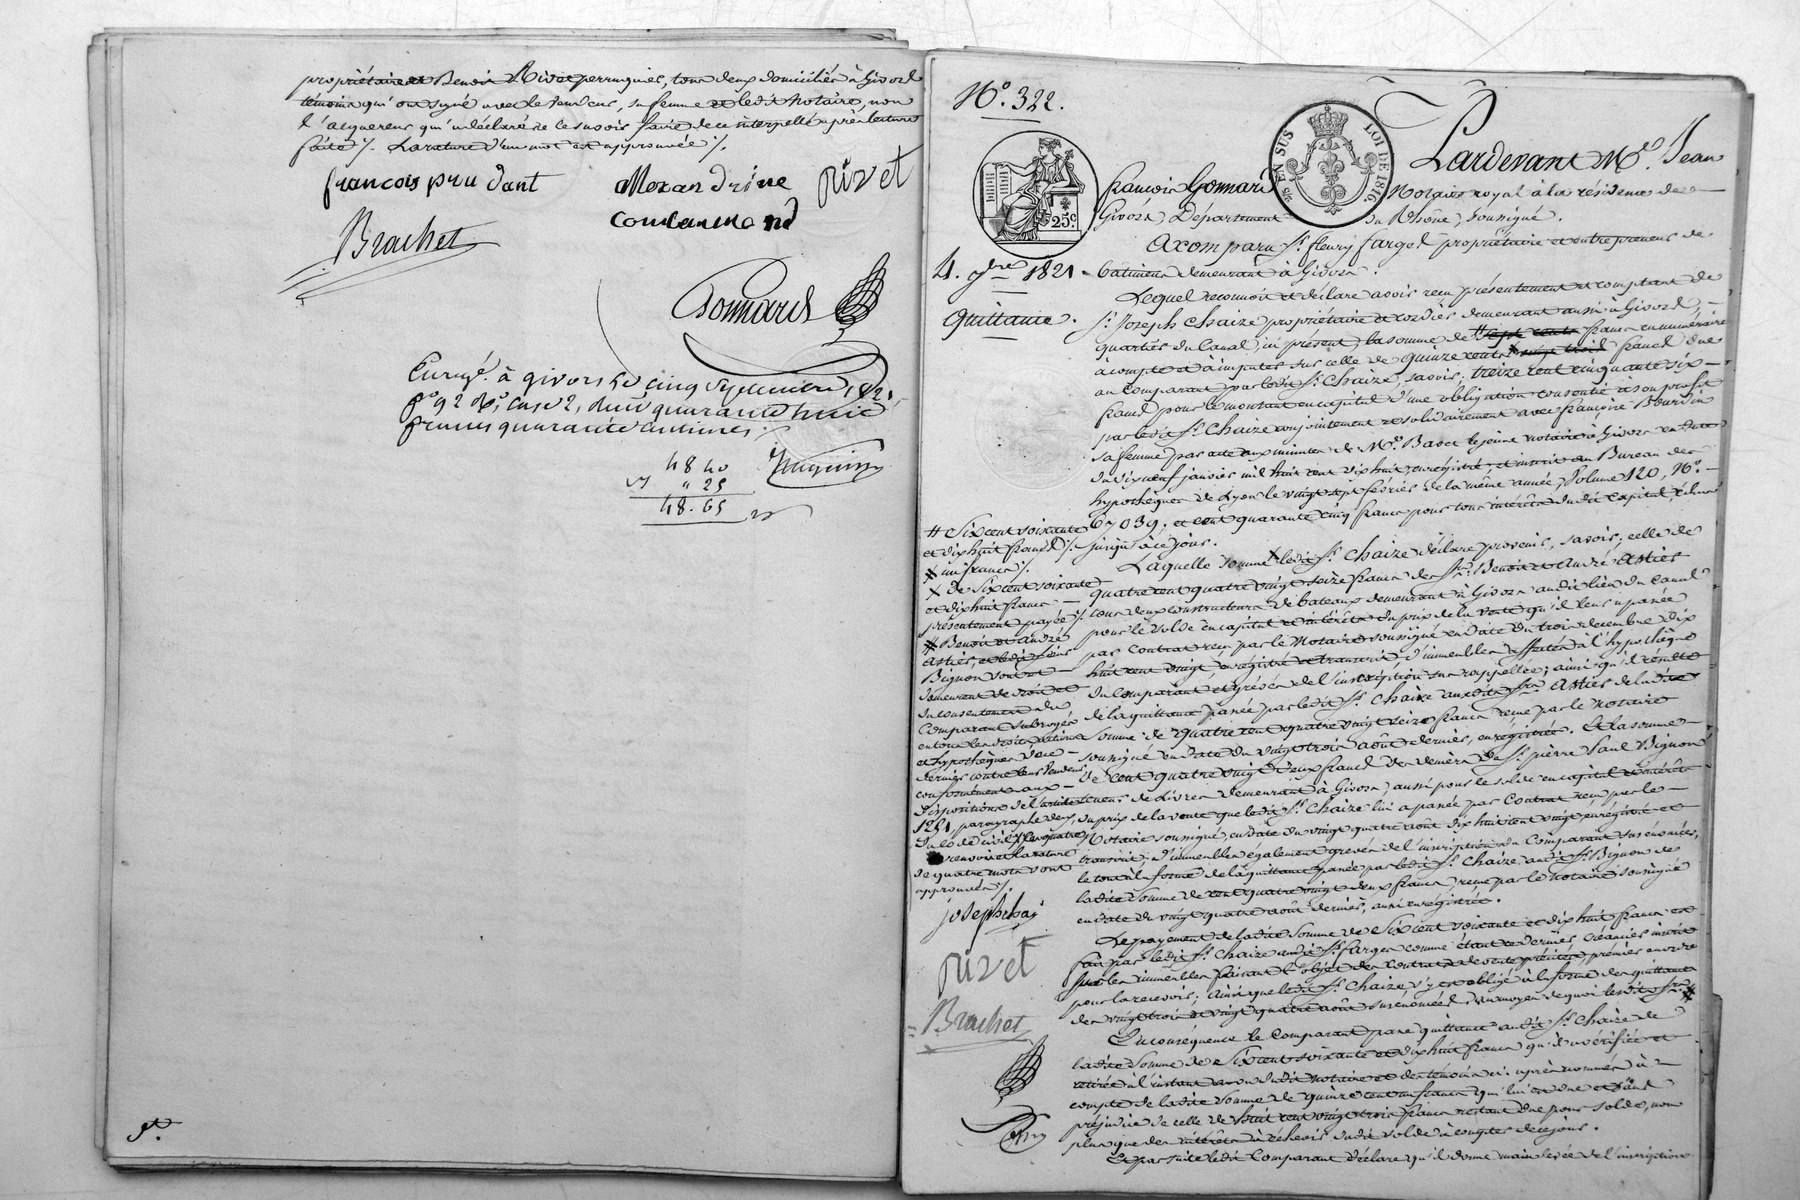 propriétaire et Benoit Rivet perruquier, tous deux domiciliés à Givord
témoins qui ont signé avec le vendeur, sa femme et ledit Notaire, non
l'acquereur qui a déclaré ne le savoir faire de ce interpellé après lecture
faite %. La rature d'un mot est approuvée %.
francois prudant
Allexandrine
rivet
Brachet
Gonnard
Enregé. à givors le cinq septembre 1821,
fo 92 Ro, case 2, reçu quarante huit
francs quarante centimes.
48 40
" 25
48.65
No. 322.
Pardevant Me. Jean
25 EN SUS
LOI DE 1816
25c.
françois Gonnard Notaire royal à la résidence de
Givors, Département du Rhône, soussigné.
A comparu Sr. fleury farges propriétaire et entrepreneur de
4. 7bre 1821.
bâtimens demeurant à Givors.
Quittance.
Lequel reconnoit et déclare avoir reçu présentement et comptant de
Sr. Joseph Chaize propriétaire et cordier demeurant aussi à Givord,
quartier du Canal, ici présent, la somme de # sept cents francs en numéraire
à compte et à imputer sur celle de quinze cents francs due
au comparant par ledit Sr. Chaize, savoir; treize cent cinquante six
francs pour le montant en capital d'une obligation consentie à son profit
par ledit Sr. Chaize conjointement et solidairement avec françoise Bourdin
sa femme par acte aux minutes de Me. Baset le jeune notaire à Givors en date
du dix neuf janvier mil huit cent dix huit, enregistré, et inscrite au Bureau des
hypothèques de Lyon le vingt sept février de la même année, Volume 120, No.
67039; et cent quarante cinq francs pour tous intérêts dudit capital échus
jusqu'à ce jour.
Laquelle somme X ledit Sr. Chaize déclare provenir, savoir; celle de
quatre cent quatre vingt seize francs des Srs. Benoit et André Astier
tous deux constructeurs de bateaux demeurant à Givors audit lieu du Canal
pour le solde en capital et intérêts du prix de la vente qu'il leur a passée
par contrat reçu par le Notaire soussigné en date du trois decembre dix
huit cent vingt, enregistré et transcrit, d'immeubles affectés à l'hypothèque
du comparant, et grévés de l'inscription sus rappellée; ainsi qu'il résulte
de la quittance passée par ledit Sr. Chaize auxdits Srs. Astier de ladite
somme de quatre cent quatre vingt seize francs reçue par le notaire
soussigné en date du vingt trois août dernier, enregistrée. Et la somme
de cent quatre vingt deux francs des deniers de Sr. pierre Paul Bignon
demeurant à Givors, aussi pour le solde en capital et intérêts
du prix de la vente que ledit Sr. Chaize lui a passée par Contrat reçu par le
Notaire soussigné, en date du vingt quatre août dix huit cent vingt, enregistré et
transcrit, d'immeubles également grevés de l'inscription du Comparant sus énoncée,
le tout à la forme de la quittance passée par ledit Sr. Chaize audit Sr. Bignon de
ladite somme de cent quatre vingt deux francs, reçue par le Notaire soussigné
en date du vingt quatre août dernier, aussi enregistrée.
Le payement de ladite somme de Six cent soixante et dix huit francs est
fait par ledit Sr. Chaize audit Sr. farges comme étant le dernier créancier inscrit
sur les immeubles faisant l'objet des contrats de vente précités, premier en ordre
pour la recevoir; ainsi que ledit Sr. Chaize s'y est obligé à la forme des quittances
des vingt trois et vingt quatre août sus énoncées; au moyen de quoi lesdits Srs. #
En conséquence le Comparant passe quittance audit Sr. Chaize de
ladite somme de Six cent soixante et dix huit francs qu'il a vérifiée et
retirée à l'instant au vu dudit notaire et des témoins ci-après nommés à
compte de ladite somme de quinze cent un francs qui lui est due et sans
préjudice de celle de huit cent vingt trois francs restant due pour solde, non
plus que des intérêts à échoir dudit solde à compter de ce jour.
Et par suite ledit Comparant déclare qu'il donne main levée de l'inscription
# Six cent soixante
et dix huit francs %.
X un francs %.
X de Six cent soixante
et dix huit francs
présentement payée %.
# Benoit et André
Astier, et ledit sieur
Bignon sont et
demeurent de droit et
du consentement du
Comparant subrogés
en tous les droits, actions
et hypothèques de ce
dernier contre leur vendeur
conformément aux
dispositions de l'article
1251, paragraphe deux
du code civil %. Les quatre
renvois et la rature
de quatre mots sont
approuvés %.
joseph chaiz
rivet
Brachet